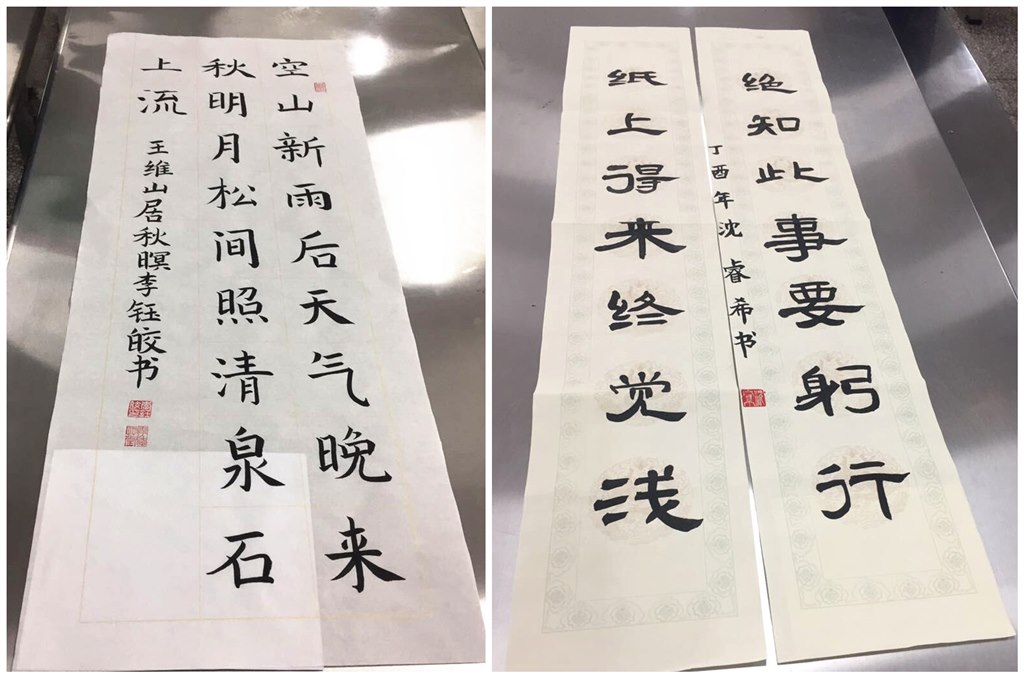 空山新雨后天气晚来
秋明月松间照清泉石
上流
王维山居秋暝李钰皎书
纸上得来终觉浅
绝知此事要躬行
丁酉年沈睿希书